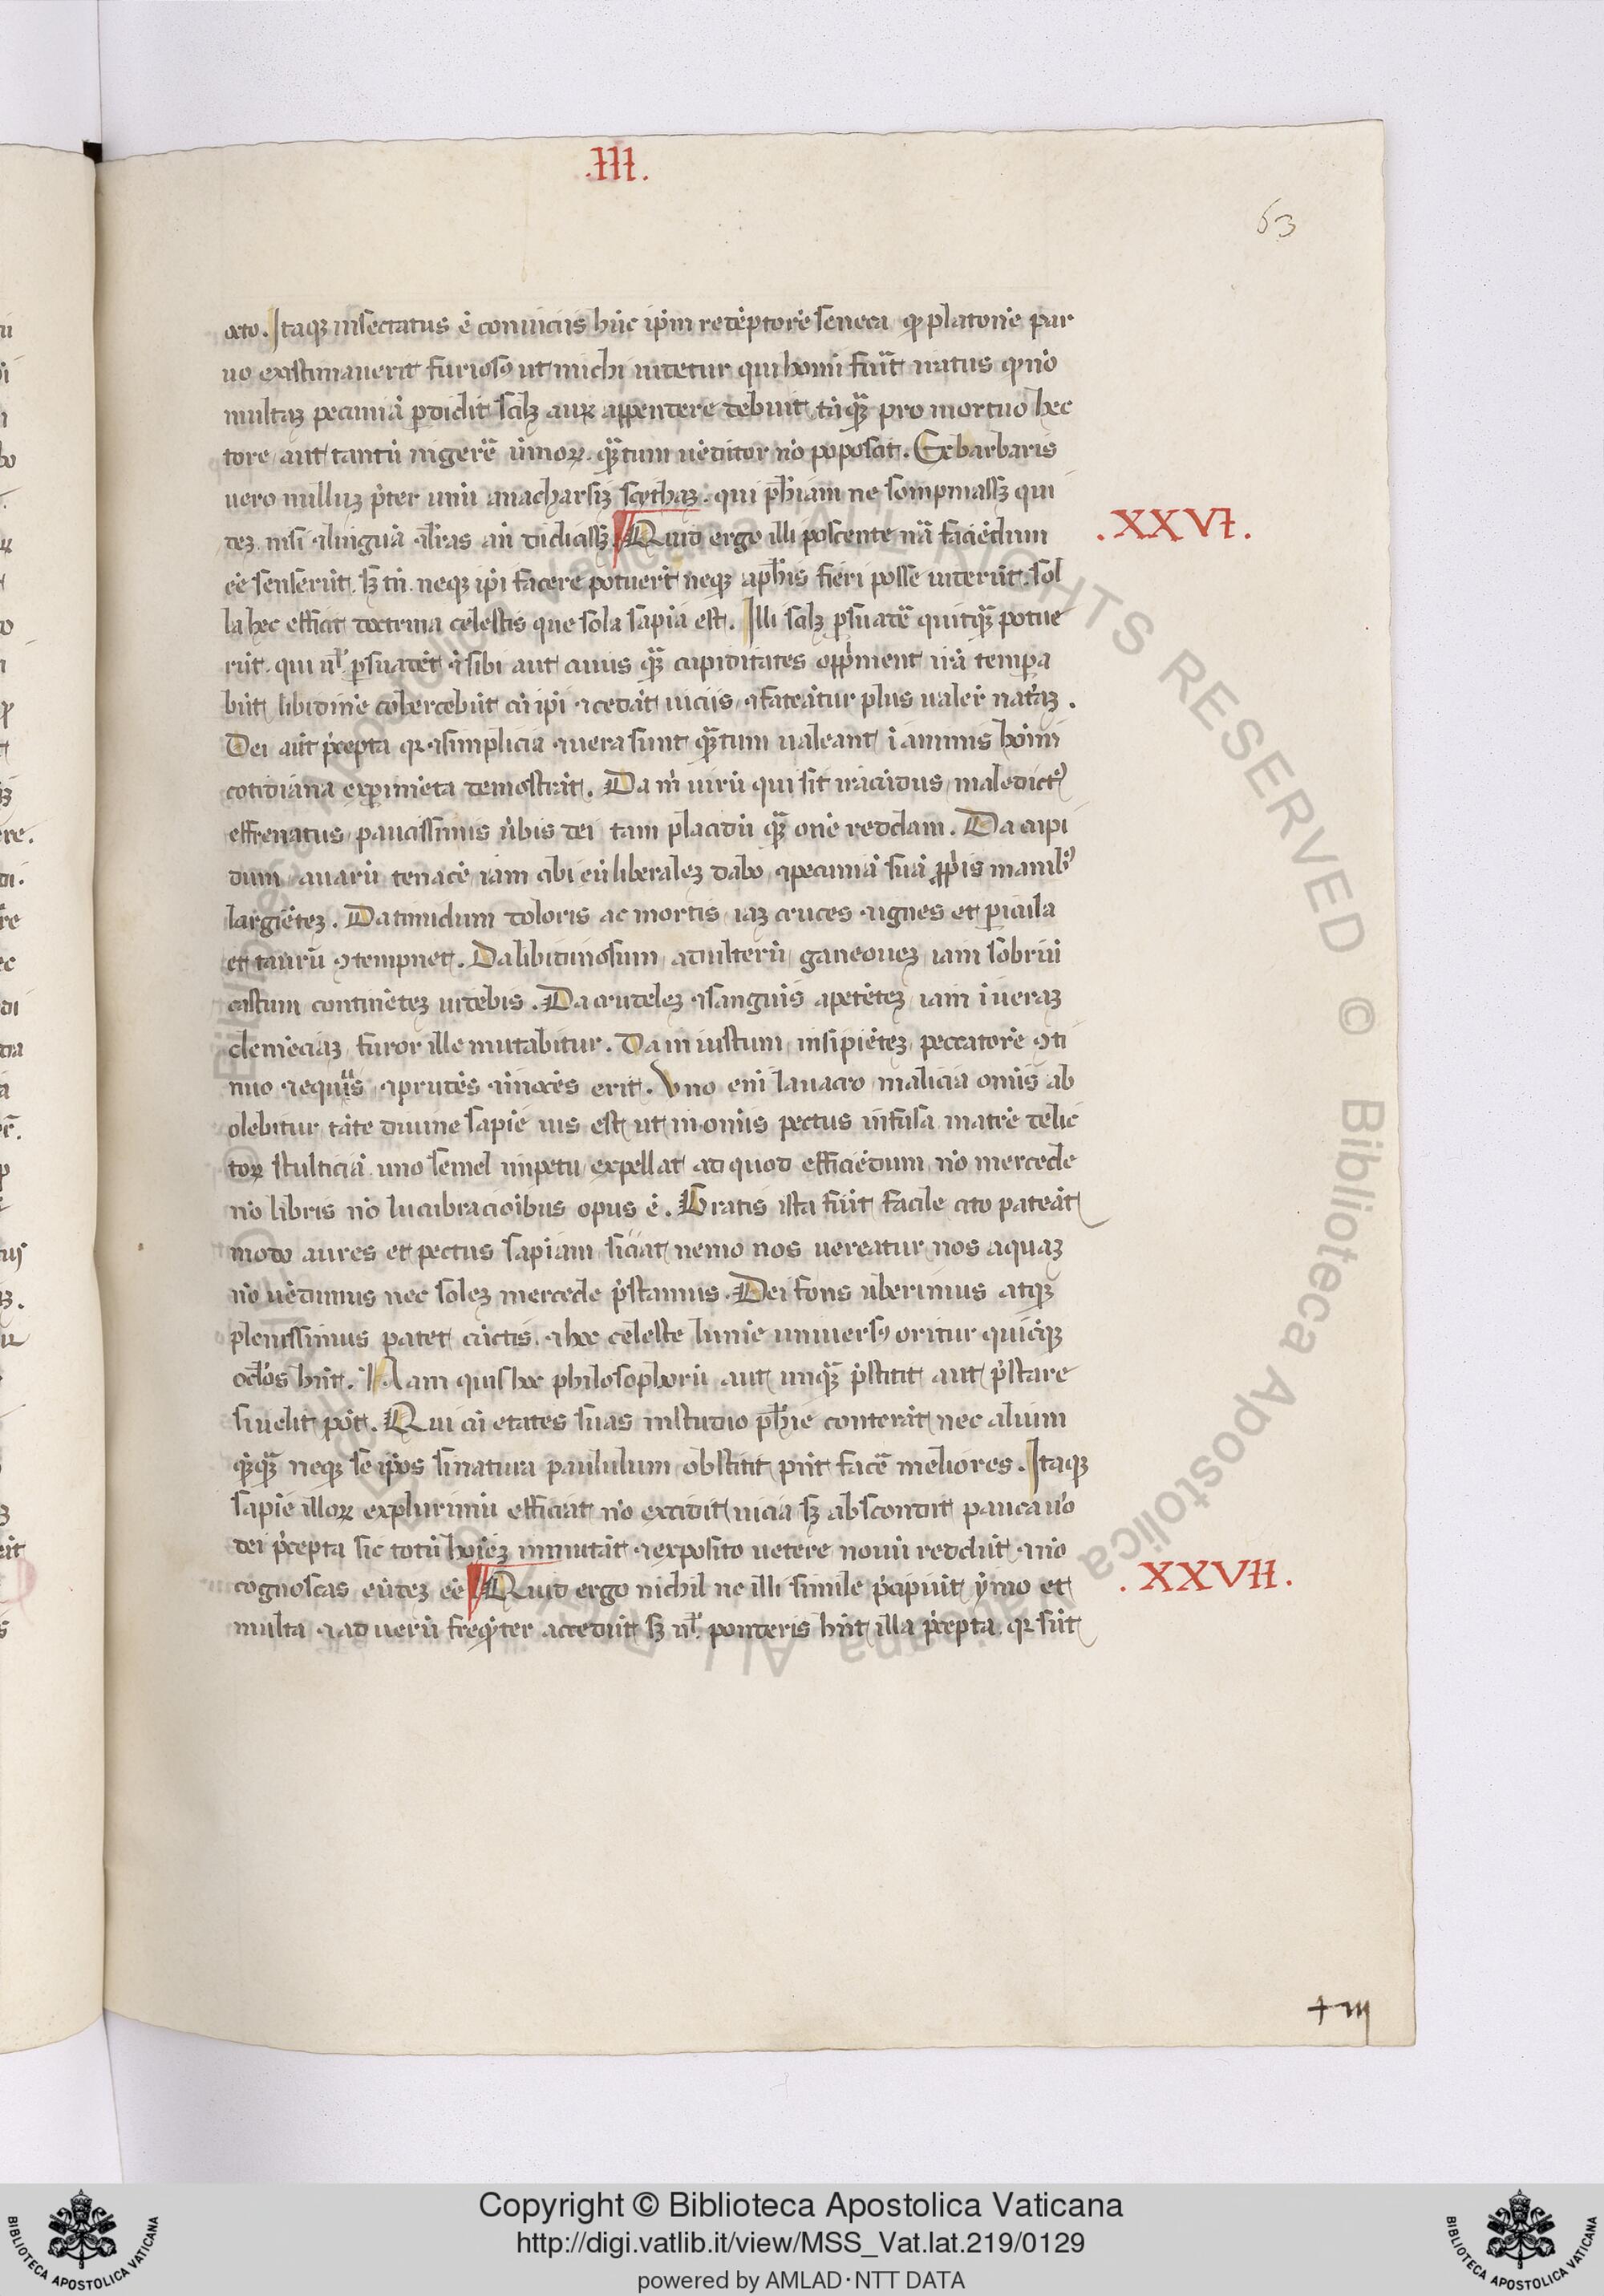 .III.
63
octo. Itaqꝫ insectatus ē conviciis hūc ip̄m redēptorē seneca qꝫ platonē par
uo existimauerit furioso ut michi uidetur qui homī fūit iratus qꝫ nō
multaꝫ pecuniā ꝑdidit scilꝫ auꝝ appendere debuit tāqꝫ̄ pro mortuo hec
tore aut tantū ingerē̄ ūmoꝝ qꝫ̄tum uēditor nō poposcit. Ex barbaris
uero nulluꝫ p̄ter unū anacharsiꝫ scythaꝫ. qui ph̄iam ne sompniassꝫ qui
deꝫ nisi ⁊ linguā ⁊ lr̄as an̄ didicissꝫ Quid ergo illi poscente nā̄ faciēdum
.XXVI.
eē senserūt. sꝫ tn̄. neqꝫ ip̄i facere potuerūt neqꝫ a ph̄is fieri posse uiderūt. sol
la hec efficit doctrina celestis que sola sapīa est. Illi scilꝫ ꝑsuadē̄ quiqꝫ̄ potue
rūt. qui nl̄ ꝑsuadēt ⁊ sibi aut cuius qꝫ̄ cupiditates opp̄ment irā tempera
būt libidinē cohercebūt cū ip̄i ⁊ cedāt uiciis ⁊ fateātur plus ualeꝛ̄ nat̄aꝫ.
Dei aūt p̄cepta qꝛ ⁊ simplicia ⁊ uera sunt qꝫ̄tum ualeant ī animis hoīm
cotidiana exꝑimēta demōstrāt. Da m̄ uirū qui sit iracūdus maledictꝰ
effrenatus paucissimis ūbis dei tam placidū qꝫ̄ ouē reddam. Da cupi
dum auarū tenacē iam tibi eū liberaleꝫ dabo ⁊ pecuniā suā ꝓp̄is manibꝰ
largiēteꝫ. Da timidum doloris ac mortis iaꝫ cruces ⁊ ignes et ꝑicula
et taurū ꝯtempnet. Da libidinosum adulterū ganeoneꝫ iam sobriū
castum continēteꝫ uidebis. Da crudeleꝫ ⁊ sangu̅is apetēteꝫ iam ī ueraꝫ
clemēciaꝫ furor ille mutabitur. Da iniustum insipiēteꝫ peccatorē ꝯti
nuo ⁊ equus ⁊ prudēs ⁊ īnocēs erit. Vno enī lauacro malicia omīs ab
olebitur tāte diuine sapīe uis est ut in omīs pectus infusa matrē delic
toꝝ stulticiā uno semel impetu expellat ad quod efficiēdum nō mercede
nō libris nō lucubracioībus opus ē. Gratis ista fīūt facile cito pateāt
modo aures et pectus sapīam siciat nemo nos uereatur nos aquaꝫ
nō uēdimus nec soleꝫ mercede p̄stamus. Dei fons ūberimus atqꝫ
plenissimus patet cūctis. ⁊ hoc celeste lumē universꝰ oritur quicūqꝫ
oc̄los hn̄t. Nam quis hoc philosophorū aut unqꝫ̄ p̄stitit aut p̄stare
si uelit pōt. Qui cū etates suas in studio ph̄ie conterāt nec alium
qꝫqꝫ̄ neqꝫ se ip̄os si natura paululum obstitit pn̄t facē meliores. Itaqꝫ
sapīe illoꝝ ex plurimū efficiat nō excidit uicia sꝫ abscondit pauca uō
dei p̄cepta sic totū hoīeꝫ inmutāt ⁊ exposito uetere nouū reddūt ⁊ nō
cognoscas eūdeꝫ eē Quid ergo nichil ne illi simile p̄cipiūt ymo et
.XXVII.
multa ⁊ ad uerū freqꝫ̄ter accedūt sꝫ nl̄ ponderis hn̄t illa p̄cepta. qꝛ sūt
Copyright © Biblioteca Apostolica Vaticana
http://digi.vatlib.it/view/MSS_Vat.lat.219/0129
powered by AMLAD·NTT DATA
BIBLIOTECA APOSTOLICA VATICANA
BIBLIOTECA APOSTOLICA VATICANA